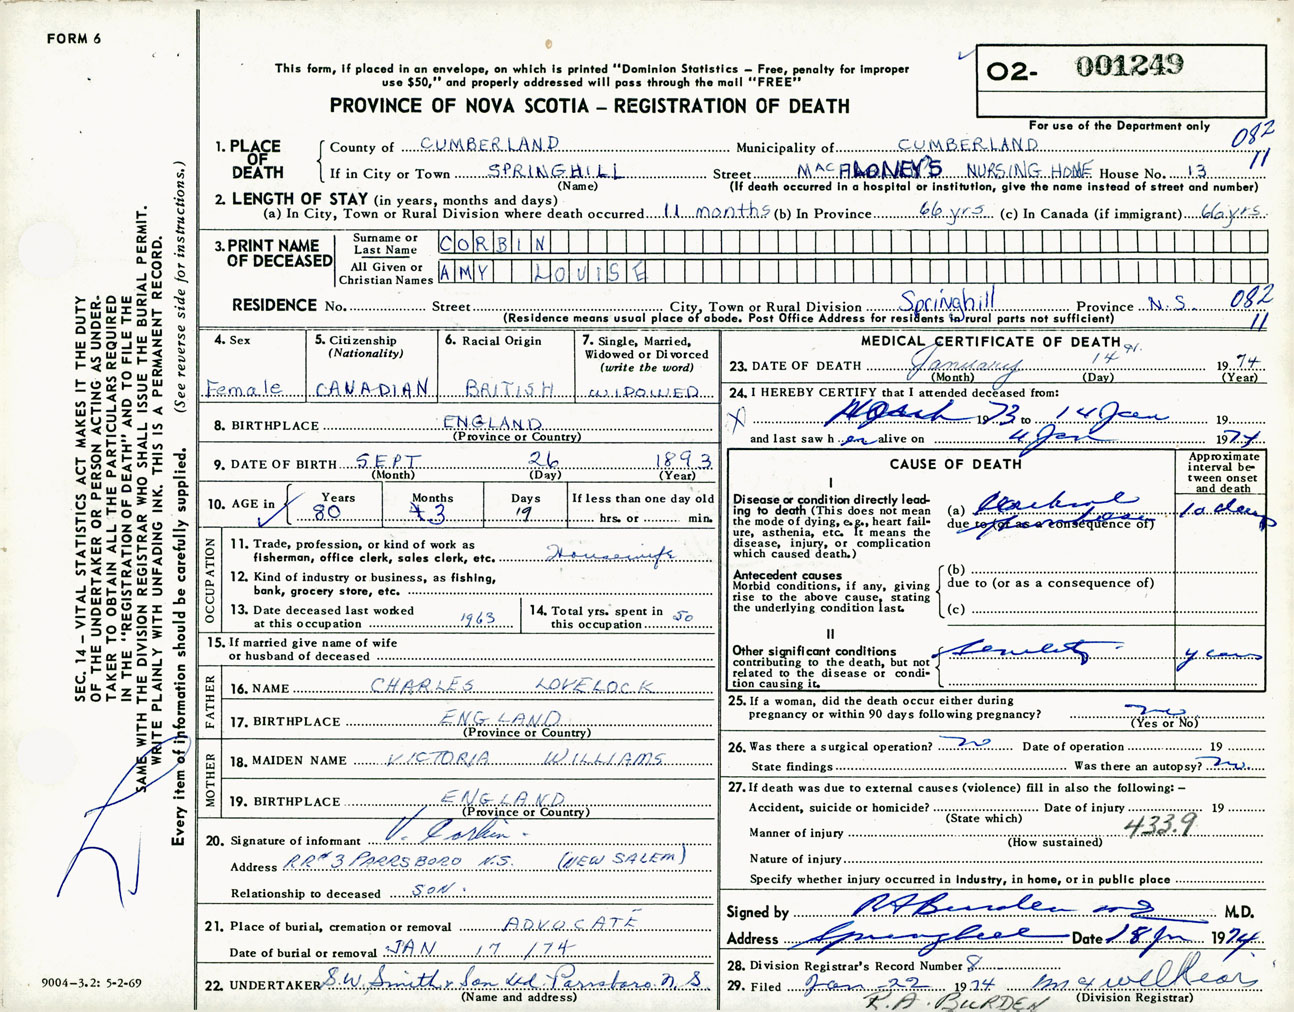 FORM 6
This form, if placed in an envelope, on which is printed "Dominion Statistics – Free, penalty for improper
use $50," and properly addressed will pass through the mail "FREE"
PROVINCE OF NOVA SCOTIA – REGISTRATION OF DEATH
O2- 001249
For use of the Department only
082
11
1. PLACE OF DEATH
County of CUMBERLAND Municipality of CUMBERLAND
If in City or Town SPRINGHILL Street NURSING HOME House No. 13
(Name) (If death occurred in a hospital or institution, give the name instead of street and number)
2. LENGTH OF STAY (in years, months and days)
(a) In City, Town or Rural Division where death occurred 11 months (b) In Province 66 yrs (c) In Canada (if immigrant) 66 yrs.
3. PRINT NAME OF DECEASED
Surname or Last Name CORBIN
All Given or Christian Names AMY LOUISE
RESIDENCE No. Street City, Town or Rural Division Springhill Province N.S. 082
11
(Residence means usual place of abode. Post Office Address for residents in rural parts not sufficient)
4. Sex Female
5. Citizenship (Nationality) CANADIAN
6. Racial Origin BRITISH
7. Single, Married, Widowed or Divorced (write the word) WIDOWED
8. BIRTHPLACE ENGLAND
(Province or Country)
9. DATE OF BIRTH SEPT 26 1893
(Month) (Day) (Year)
10. AGE in Years 80 Months 3 Days 19 If less than one day old
hrs. or min.
OCCUPATION
11. Trade, profession, or kind of work as
fisherman, office clerk, sales clerk, etc. Housewife
12. Kind of industry or business, as fishing,
bank, grocery store, etc.
13. Date deceased last worked
at this occupation 1963
14. Total yrs. spent in
this occupation 50
15. If married give name of wife
or husband of deceased
FATHER
16. NAME CHARLES LOVELOCK
17. BIRTHPLACE ENGLAND
(Province or Country)
MOTHER
18. MAIDEN NAME VICTORIA WILLIAMS
19. BIRTHPLACE ENGLAND
(Province or Country)
20. Signature of informant V. Corbin.
Address R.R.#3 PARRSBORO N.S. (NEW SALEM)
Relationship to deceased SON.
21. Place of burial, cremation or removal ADVOCATE
Date of burial or removal JAN 17 /74
22. UNDERTAKER S.W. Smith & Son Ltd. Parrsboro N.S.
(Name and address)
MEDICAL CERTIFICATE OF DEATH
23. DATE OF DEATH January 14 1974
(Month) (Day) (Year)
24. I HEREBY CERTIFY that I attended deceased from:
1973 to 14 Jan 19
and last saw h er alive on 4 Jan 1974
CAUSE OF DEATH
Approximate interval between onset and death
I
Disease or condition directly lead-
ing to death (This does not
mean the mode of dying, e.g., heart fail-
ure, asthenia, etc. It means the
disease, injury, or complication
which caused death.)
(a) Cerebral 10 days
due to (or as a consequence of)
Antecedent causes
Morbid conditions, if any, giving
rise to the above cause, stating
the underlying condition last.
(b)
due to (or as a consequence of)
(c)
II
Other significant conditions
contributing to the death, but not
related to the disease or condi-
tion causing it.
years
25. If a woman, did the death occur either during
pregnancy or within 90 days following pregnancy? no
(Yes or No)
26. Was there a surgical operation? no Date of operation 19
State findings Was there an autopsy? no.
27. If death was due to external causes (violence) fill in also the following: –
Accident, suicide or homicide? Date of injury 19
(State which)
433.9
Manner of injury
(How sustained)
Nature of injury
Specify whether injury occurred in industry, in home, or in public place
Signed by RA Burden M.D.
Address Springhill Date 18 Jan 1974.
28. Division Registrar's Record Number 8
29. Filed Jan 22 1974
(Division Registrar)
R.A. BURDEN
SEC. 14 – VITAL STATISTICS ACT MAKES IT THE DUTY
OF THE UNDERTAKER OR PERSON ACTING AS UNDER-
TAKER TO OBTAIN ALL THE PARTICULARS REQUIRED
IN THE "REGISTRATION OF DEATH" AND TO FILE THE
SAME WITH THE DIVISION REGISTRAR WHO SHALL ISSUE THE BURIAL PERMIT.
WRITE PLAINLY WITH UNFADING INK. THIS IS A PERMANENT RECORD.
Every item of information should be carefully supplied. (See reverse side for instructions.)
9004-3.2: 5-2-69